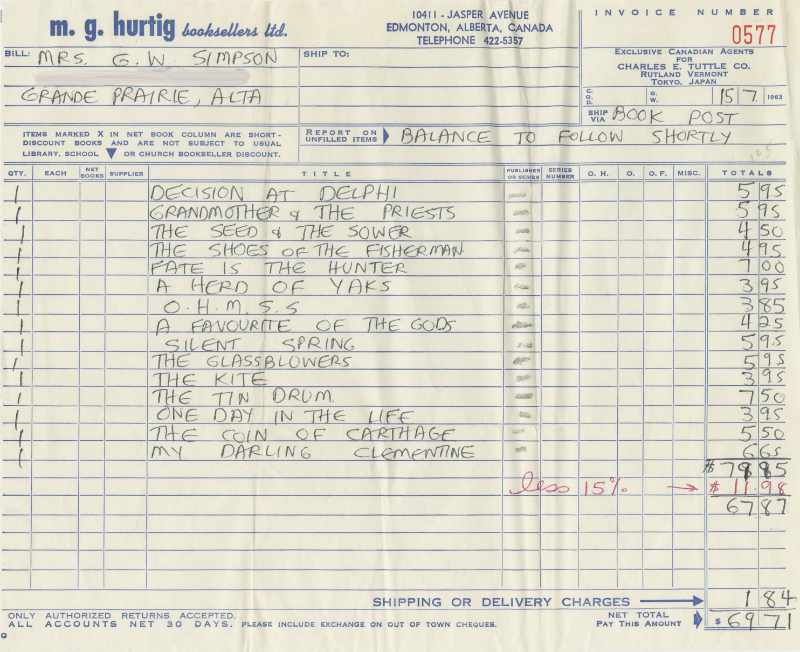 m. g. hurtig booksellers ltd.
10411 - JASPER AVENUE
EDMONTON, ALBERTA, CANADA
TELEPHONE 422-5357
INVOICE NUMBER
0577
EXCLUSIVE CANADIAN AGENTS
FOR
CHARLES E. TUTTLE CO.
RUTLAND VERMONT
TOKYO, JAPAN
BILL: MRS. G. W. SIMPSON
GRANDE PRAIRIE, ALTA
SHIP TO:
C.O.D. G.W. 15 7 1963
SHIP VIA BOOK POST
ITEMS MARKED X IN NET BOOK COLUMN ARE SHORT-
DISCOUNT BOOKS AND ARE NOT SUBJECT TO USUAL
LIBRARY, SCHOOL OR CHURCH BOOKSELLER DISCOUNT.
REPORT ON UNFILLED ITEMS BALANCE TO FOLLOW SHORTLY
QTY. EACH NET BOOKS SUPPLIER TITLE PUBLISHER OR SERIES SERIES NUMBER O. H. O. O. F. MISC. TOTALS
1 DECISION AT DELPHI 5 95
1 GRANDMOTHER & THE PRIESTS 5 95
1 THE SEED & THE SOWER 4 50
1 THE SHOES OF THE FISHERMAN 4 95
1 FATE IS THE HUNTER 7 00
1 A HERD OF YAKS 3 95
1 O.H.M.S.S 3 85
1 A FAVOURITE OF THE GODS 4 25
1 SILENT SPRING 5 95
1 THE GLASSBLOWERS 5 95
1 THE KITE 3 95
1 THE TIN DRUM 7 50
1 ONE DAY IN THE LIFE 3 95
1 THE COIN OF CARTHAGE 5 50
1 MY DARLING CLEMENTINE 6 65
$ 79 85
less 15% → $ 11.98
67 87
SHIPPING OR DELIVERY CHARGES 1 84
ONLY AUTHORIZED RETURNS ACCEPTED.
ALL ACCOUNTS NET 30 DAYS. PLEASE INCLUDE EXCHANGE ON OUT OF TOWN CHEQUES.
NET TOTAL
PAY THIS AMOUNT $ 69 71